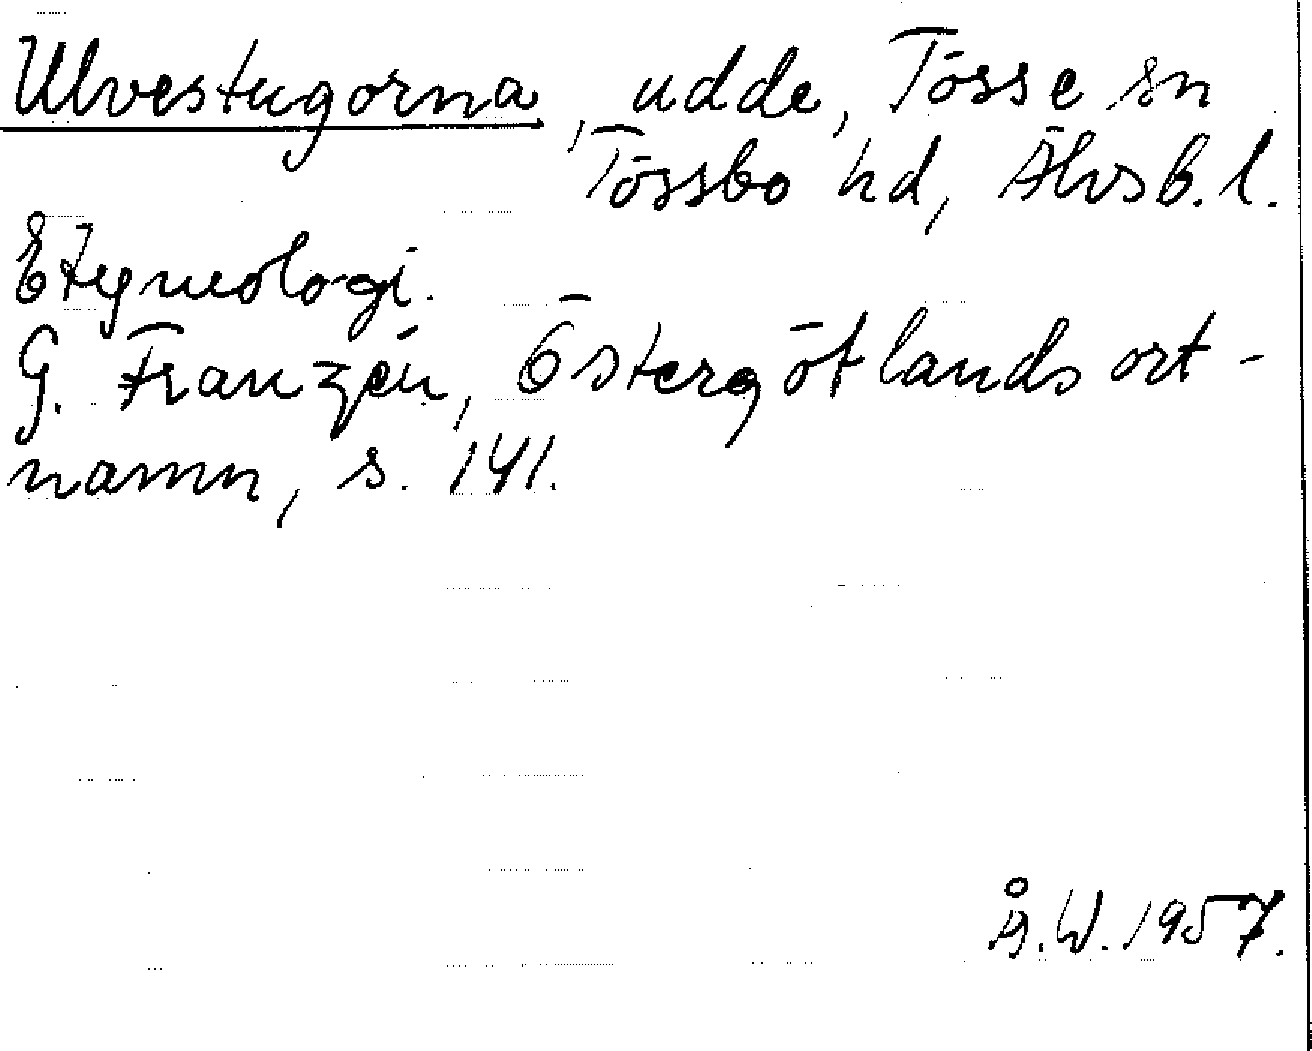 Ulvestugorna, udde, Tösse sn
Tössbo hd, Älvsb. l.
Etymologi.
G. Franzén, Östergötlands ort-
namn, s. 141.
Å.W. 1957.